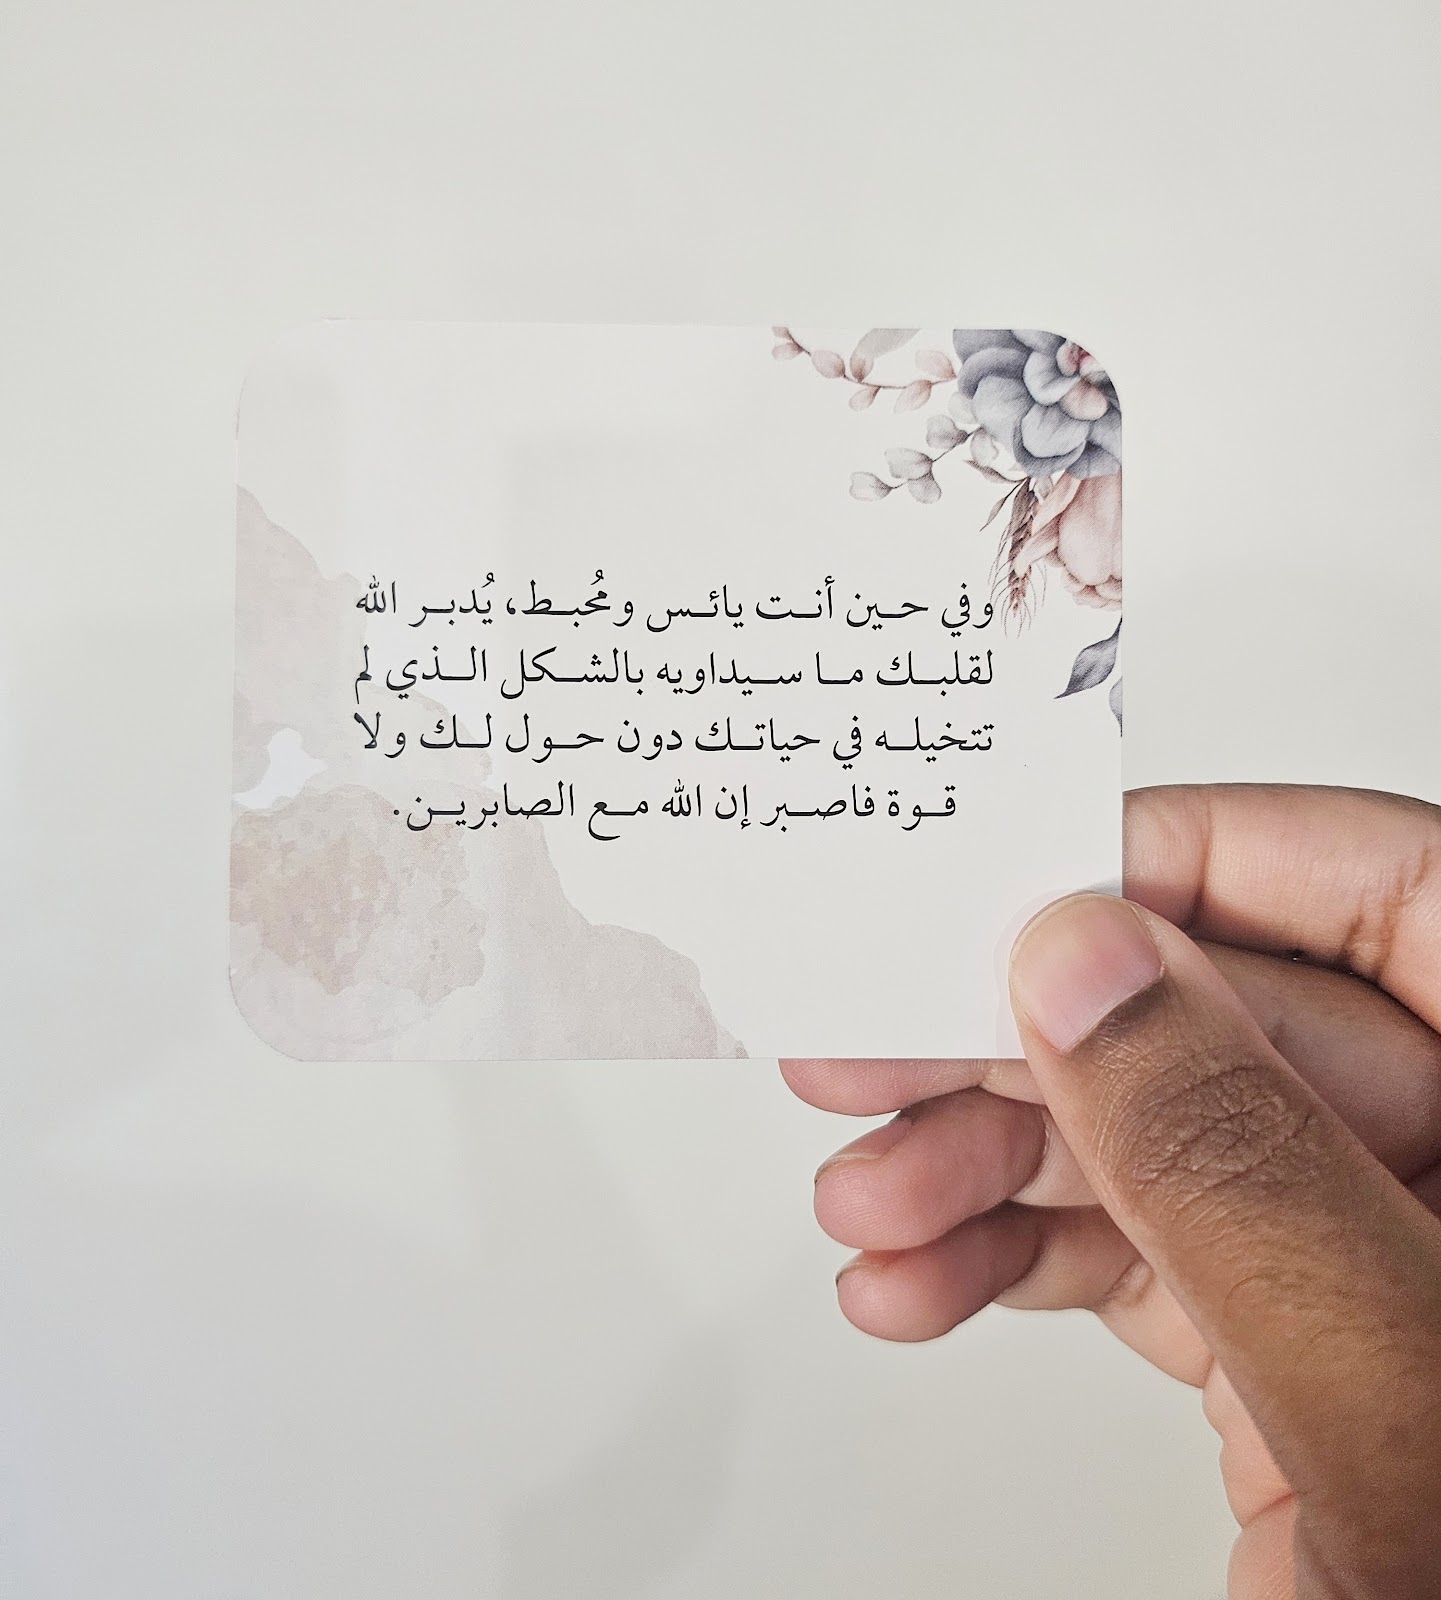 وفي حين أنت يائس ومُحبط، يُدبر الله
لقلبك ما سيداويه بالشكل الذي لم
تتخيله في حياتك دون حول لك ولا
قوة فاصبر إن الله مع الصابرين.